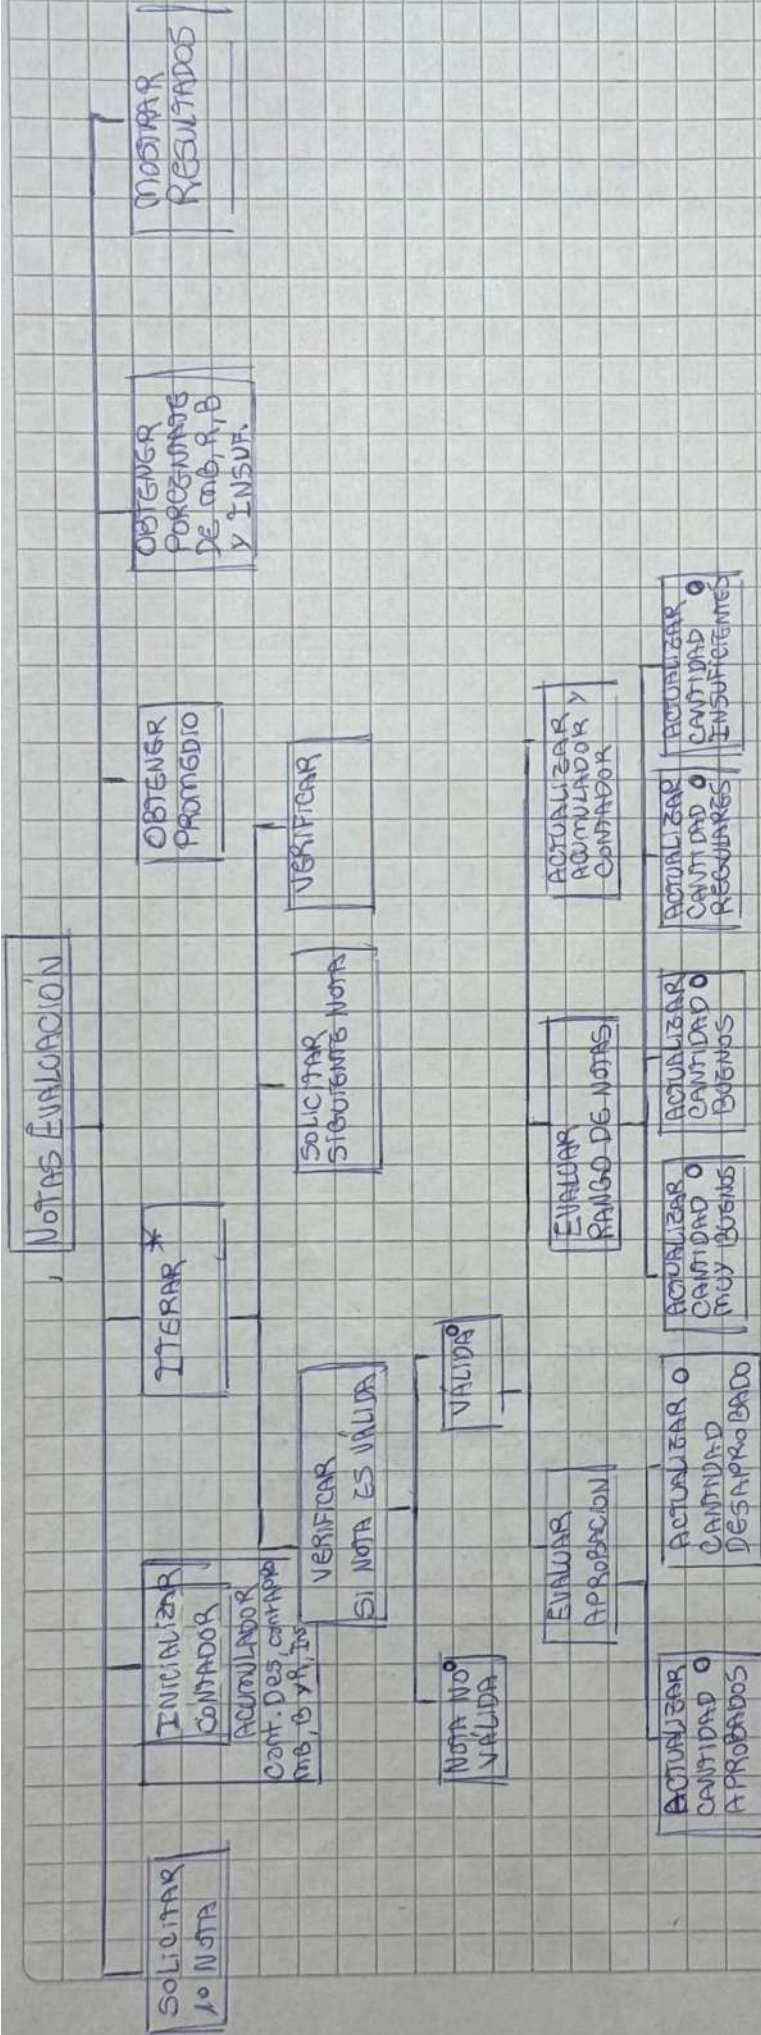 NOTAS EVALUACIÓN
SOLICITAR
1º NOTA
INICIALIZAR
CONTADOR
ACUMULADOR
CONT. DES, CONTAPRO
MB, B y R, INS
ITERAR *
OBTENER
PROMEDIO
OBTENER
PORCENTAJE
DE MB, R, B
Y INSUF.
MOSTRAR
RESULTADOS
VERIFICAR
SI NOTA ES VÁLIDA
SOLICITAR
SIGUIENTE NOTA
VERIFICAR
NOTA NO º
VÁLIDA
VÁLIDA º
EVALUAR
APROBACION
EVALUAR
RANGO DE NOTAS
ACTUALIZAR
ACUMULADOR y
CONTADOR
ACTUALIZAR
CANTIDAD O
APROBADOS
ACTUALIZAR O
CANTIDAD
DESAPROBADO
ACTUALIZAR
CANTIDAD O
MUY BUENOS
ACTUALIZAR
CANTIDAD O
BUENOS
ACTUALIZAR
CANTIDAD O
REGULARES
ACTUALIZAR
CANTIDAD O
INSUFICIENTES